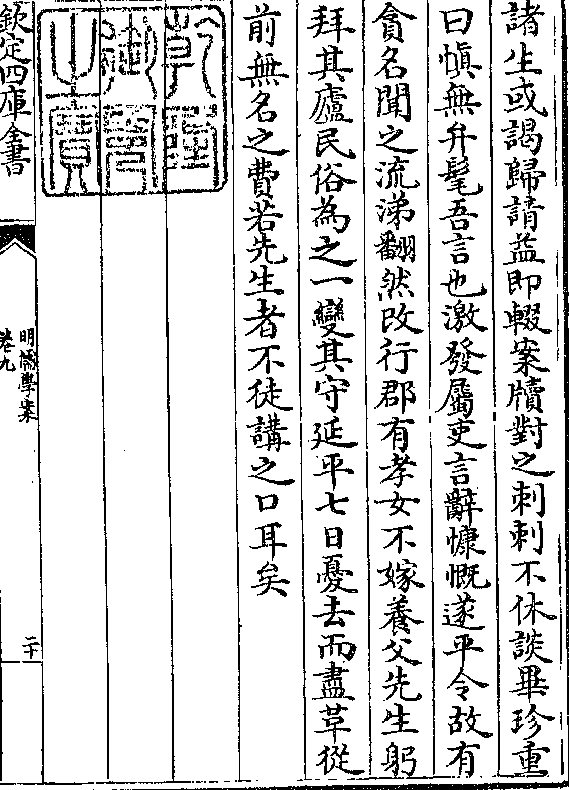 諸生或謁歸請益即輟案牘對之刺刺不休談畢珍重
曰愼無弁髦吾言也激發屬吏言辭慷慨遂平令故有
貪名聞之流涕翻然改行郡有孝女不嫁養父先生躬
拜其廬民俗為之一變其守延平七日憂去而盡革從
前無名之費若先生者不徒講之口耳矣
乾隆御覽之寶
欽定四庫全書
明儒學案
卷九
二十